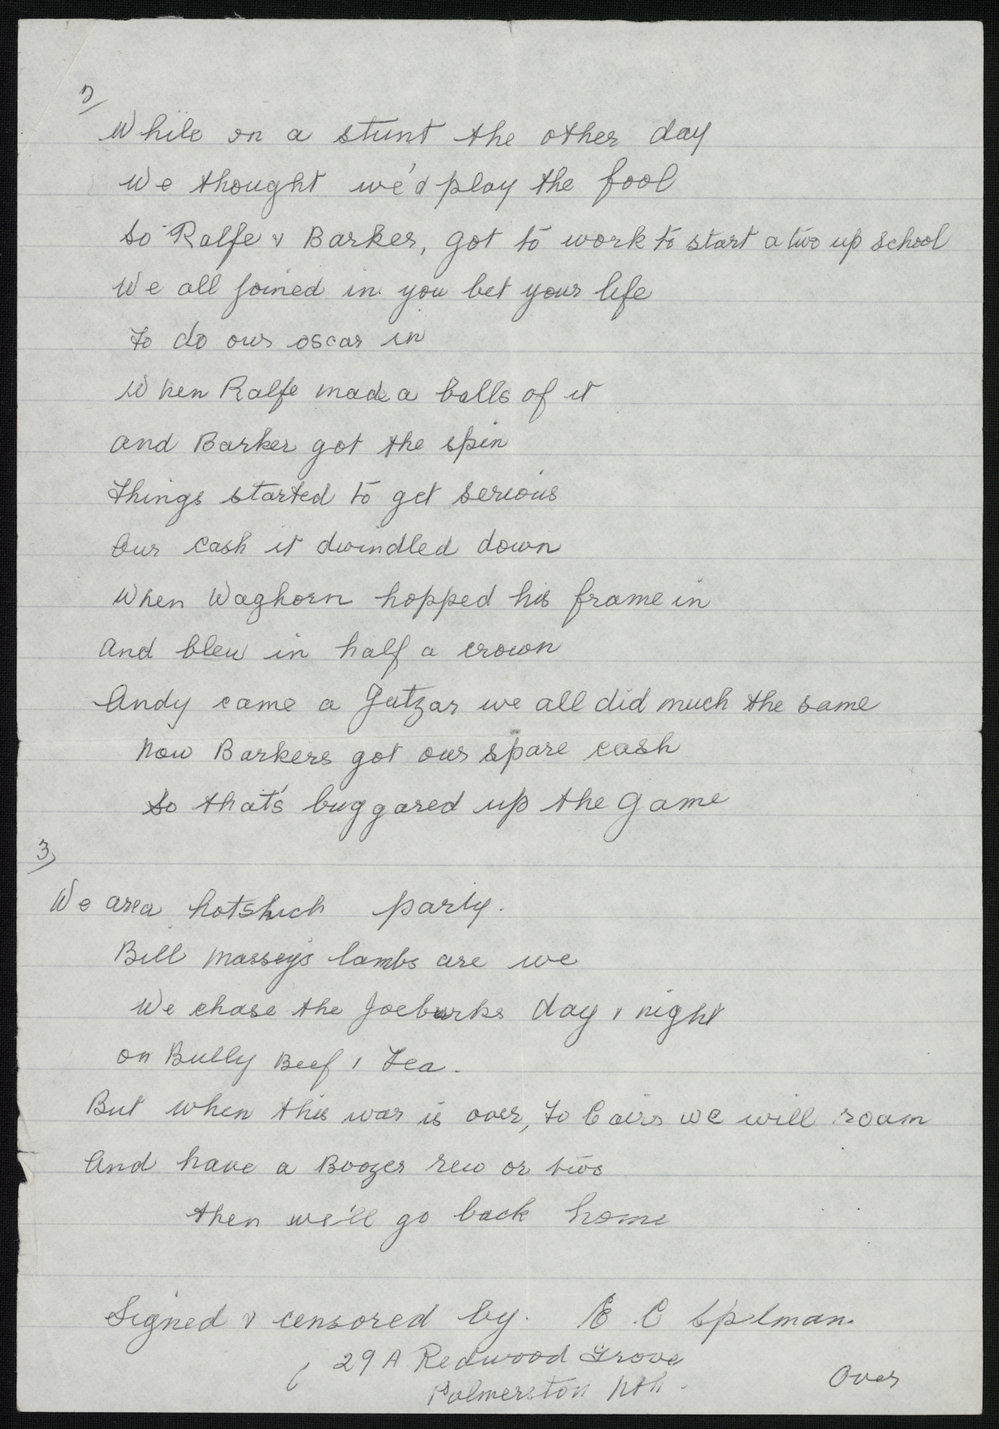 2)
While on a stunt the other day
We thought we'd play the fool
So Ralfe & Barker, got to work to start a two up school
We all joined in you bet your life
To do our oscar in
When Ralfe made a balls of it
and Barker got the spin
Things started to get serious
Our cash it dwindled down
When Waghorn hopped his frame in
And blew in half a crown
Andy came a Gutzar we all did much the same
Now Barkers got our spare cash
So that's buggared up the game
3)
We are a party.
Bill Massey's lambs are we
We chase the Joeburks day & night
on Bully Beef & Tea.
But when this war is over, To Cairo we will roam
And have a Boozer rew or two
then we'll go back home
Signed & censored by. E C Spelman.
29A Redwood Grove
Palmerston Nth.
Over